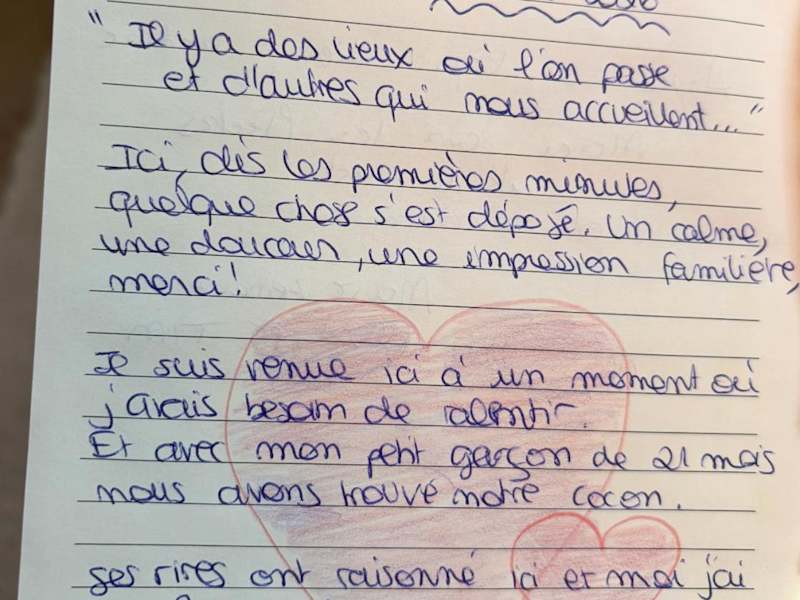 " Il y a des lieux où l'on passe
et d'autres qui nous accueillent... "
Ici, dès les premières minutes,
quelque chose s'est déposé. Un calme,
une douceur, une impression familière,
merci!
Je suis venue ici à un moment où
j'avais besoin de ralentir.
Et avec mon petit garçon de 21 mois
nous avons trouvé notre cocon.
ses rires ont raisonné ici et moi j'ai